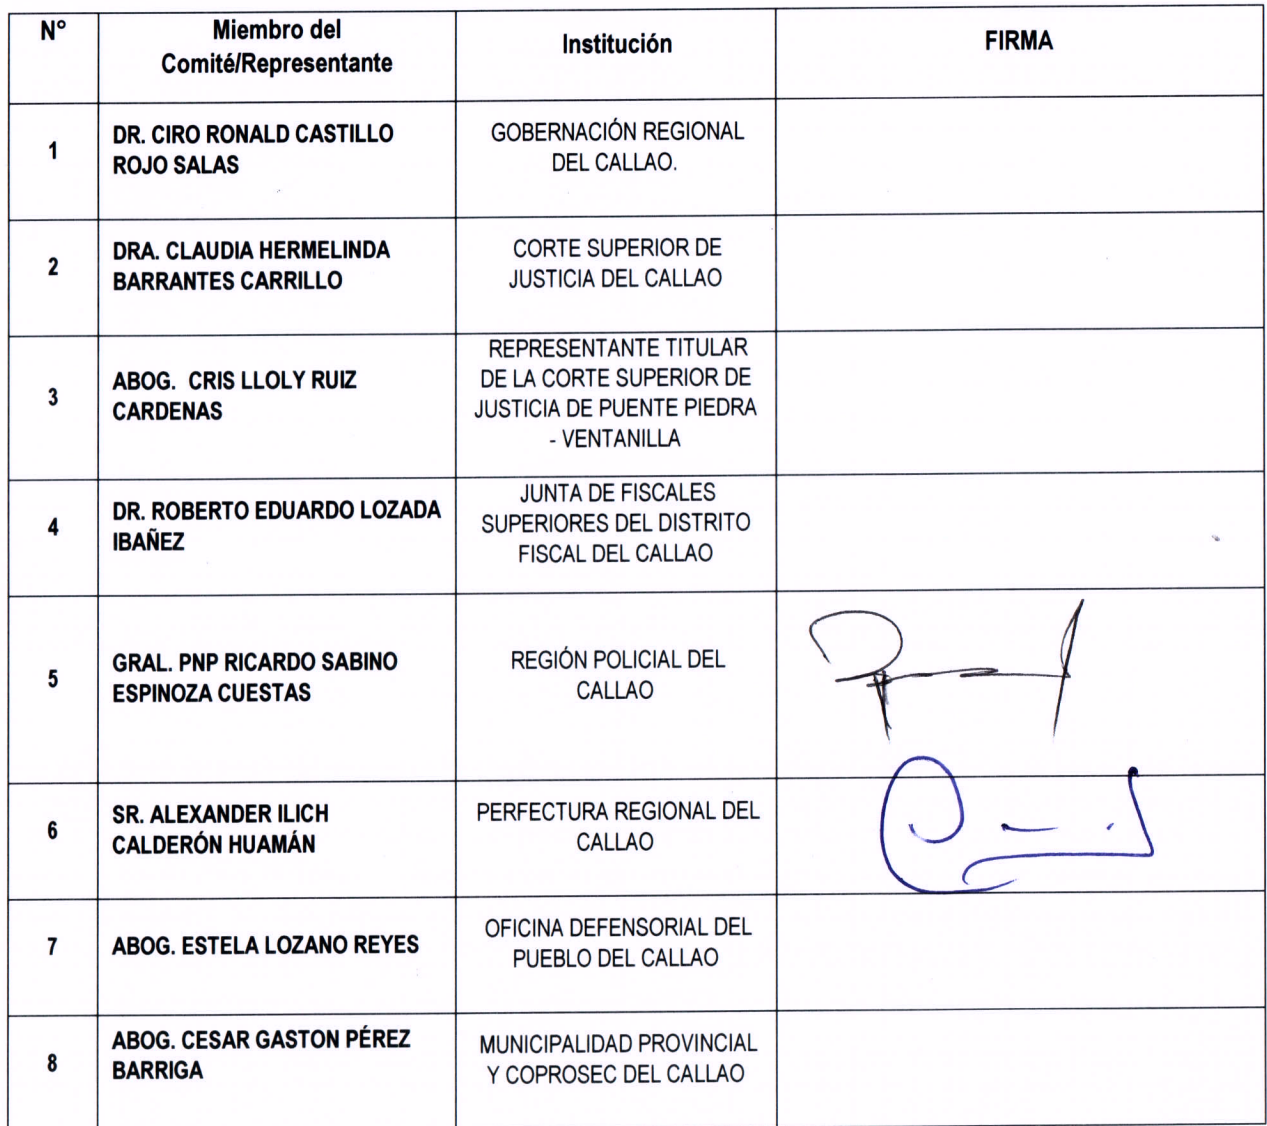 N°
Miembro del
Comité/Representante
Institución
FIRMA
1
DR. CIRO RONALD CASTILLO
ROJO SALAS
GOBERNACIÓN REGIONAL
DEL CALLAO.
2
DRA. CLAUDIA HERMELINDA
BARRANTES CARRILLO
CORTE SUPERIOR DE
JUSTICIA DEL CALLAO
3
ABOG. CRIS LLOLY RUIZ
CARDENAS
REPRESENTANTE TITULAR
DE LA CORTE SUPERIOR DE
JUSTICIA DE PUENTE PIEDRA
- VENTANILLA
4
DR. ROBERTO EDUARDO LOZADA
IBAÑEZ
JUNTA DE FISCALES
SUPERIORES DEL DISTRITO
FISCAL DEL CALLAO
5
GRAL. PNP RICARDO SABINO
ESPINOZA CUESTAS
REGIÓN POLICIAL DEL
CALLAO
6
SR. ALEXANDER ILICH
CALDERÓN HUAMÁN
PERFECTURA REGIONAL DEL
CALLAO
7
ABOG. ESTELA LOZANO REYES
OFICINA DEFENSORIAL DEL
PUEBLO DEL CALLAO
8
ABOG. CESAR GASTON PÉREZ
BARRIGA
MUNICIPALIDAD PROVINCIAL
Y COPROSEC DEL CALLAO